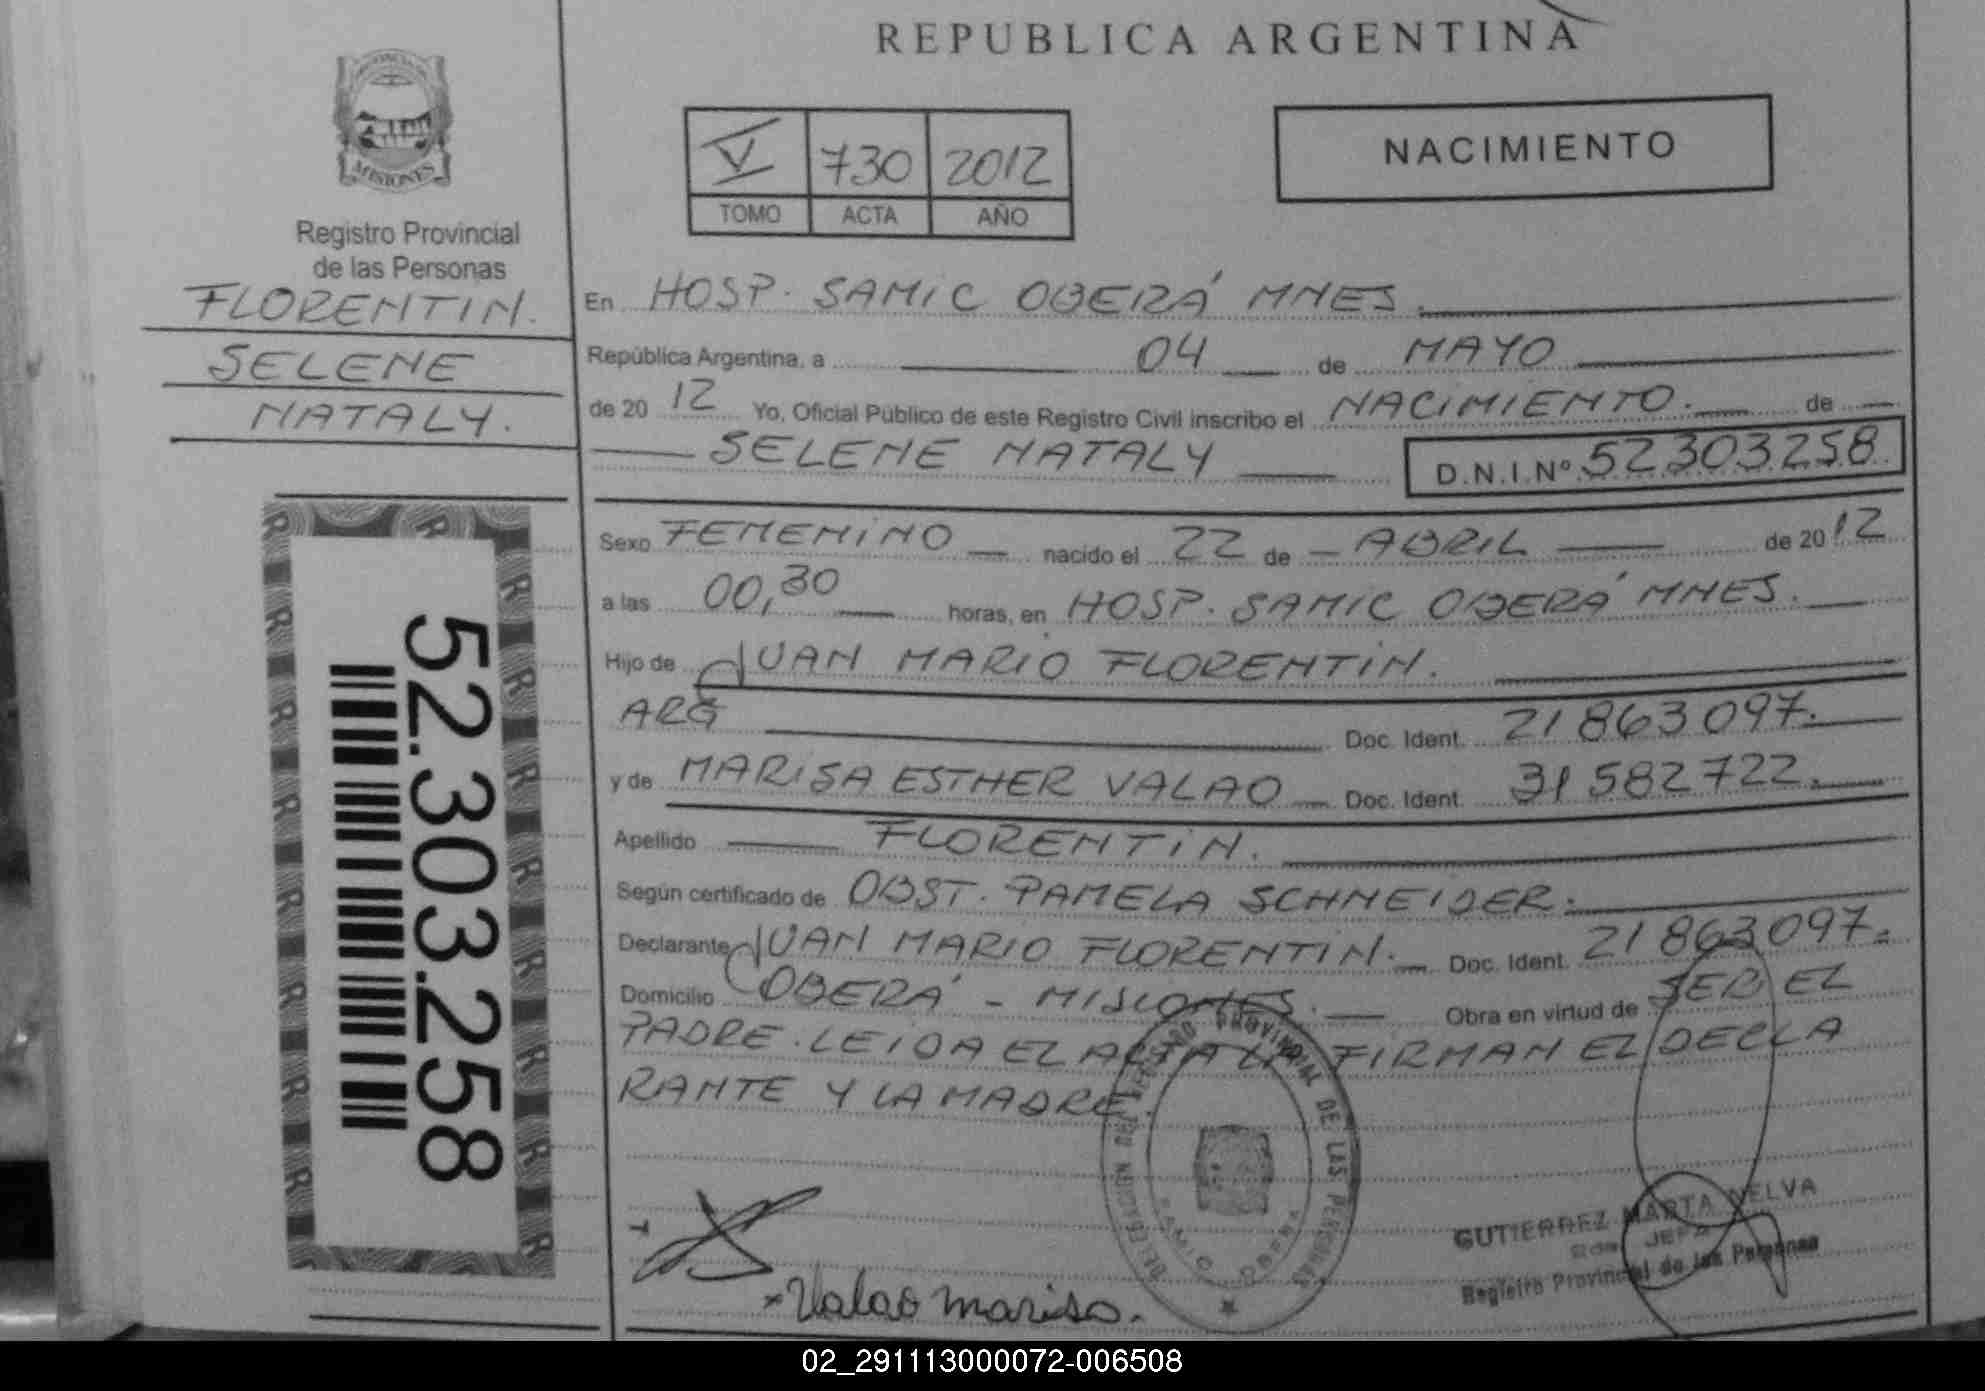 REPUBLICA ARGENTINA
MISIONES
Registro Provincial
de las Personas
FLORENTIN.
SELENE
NATALY.
V 730 2012
TOMO ACTA AÑO
NACIMIENTO
En HOSP. SAMIC OBERÁ MNES.
República Argentina, a 04 de MAYO
de 2012 Yo, Oficial Público de este Registro Civil inscribo el NACIMIENTO. de
SELENE NATALY D.N.I.Nº 52303258
Sexo FEMENINO nacido el 22 de ABRIL de 2012
a las 00,30 horas, en HOSP. SAMIC OBERÁ MNES.
Hijo de JUAN MARIO FLORENTIN.
ARG Doc. Ident. 21863097.
y de MARISA ESTHER VALAO Doc. Ident. 31582722.
Apellido FLORENTIN.
Según certificado de OBST. PAMELA SCHNEIDER.
Declarante JUAN MARIO FLORENTIN. Doc. Ident. 21863097.
Domicilio OBERÁ - MISIONES. Obra en virtud de SER EL
PADRE. LEIDA EL ACTA LA FIRMAN EL DECLA
RANTE Y LA MADRE.
52.303.258
DELEGACION DEL REGISTRO PROVINCIAL DE LAS PERSONAS
SAMIC OBERA
GUTIERREZ MARTA NELVA
JEFA
Registro Provincial de las Personas
x Valao marisa.
02_291113000072-006508